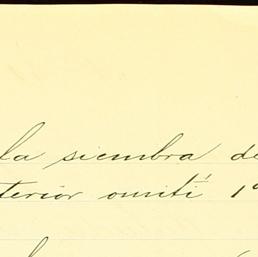 la siembra de
terior omití 1ª